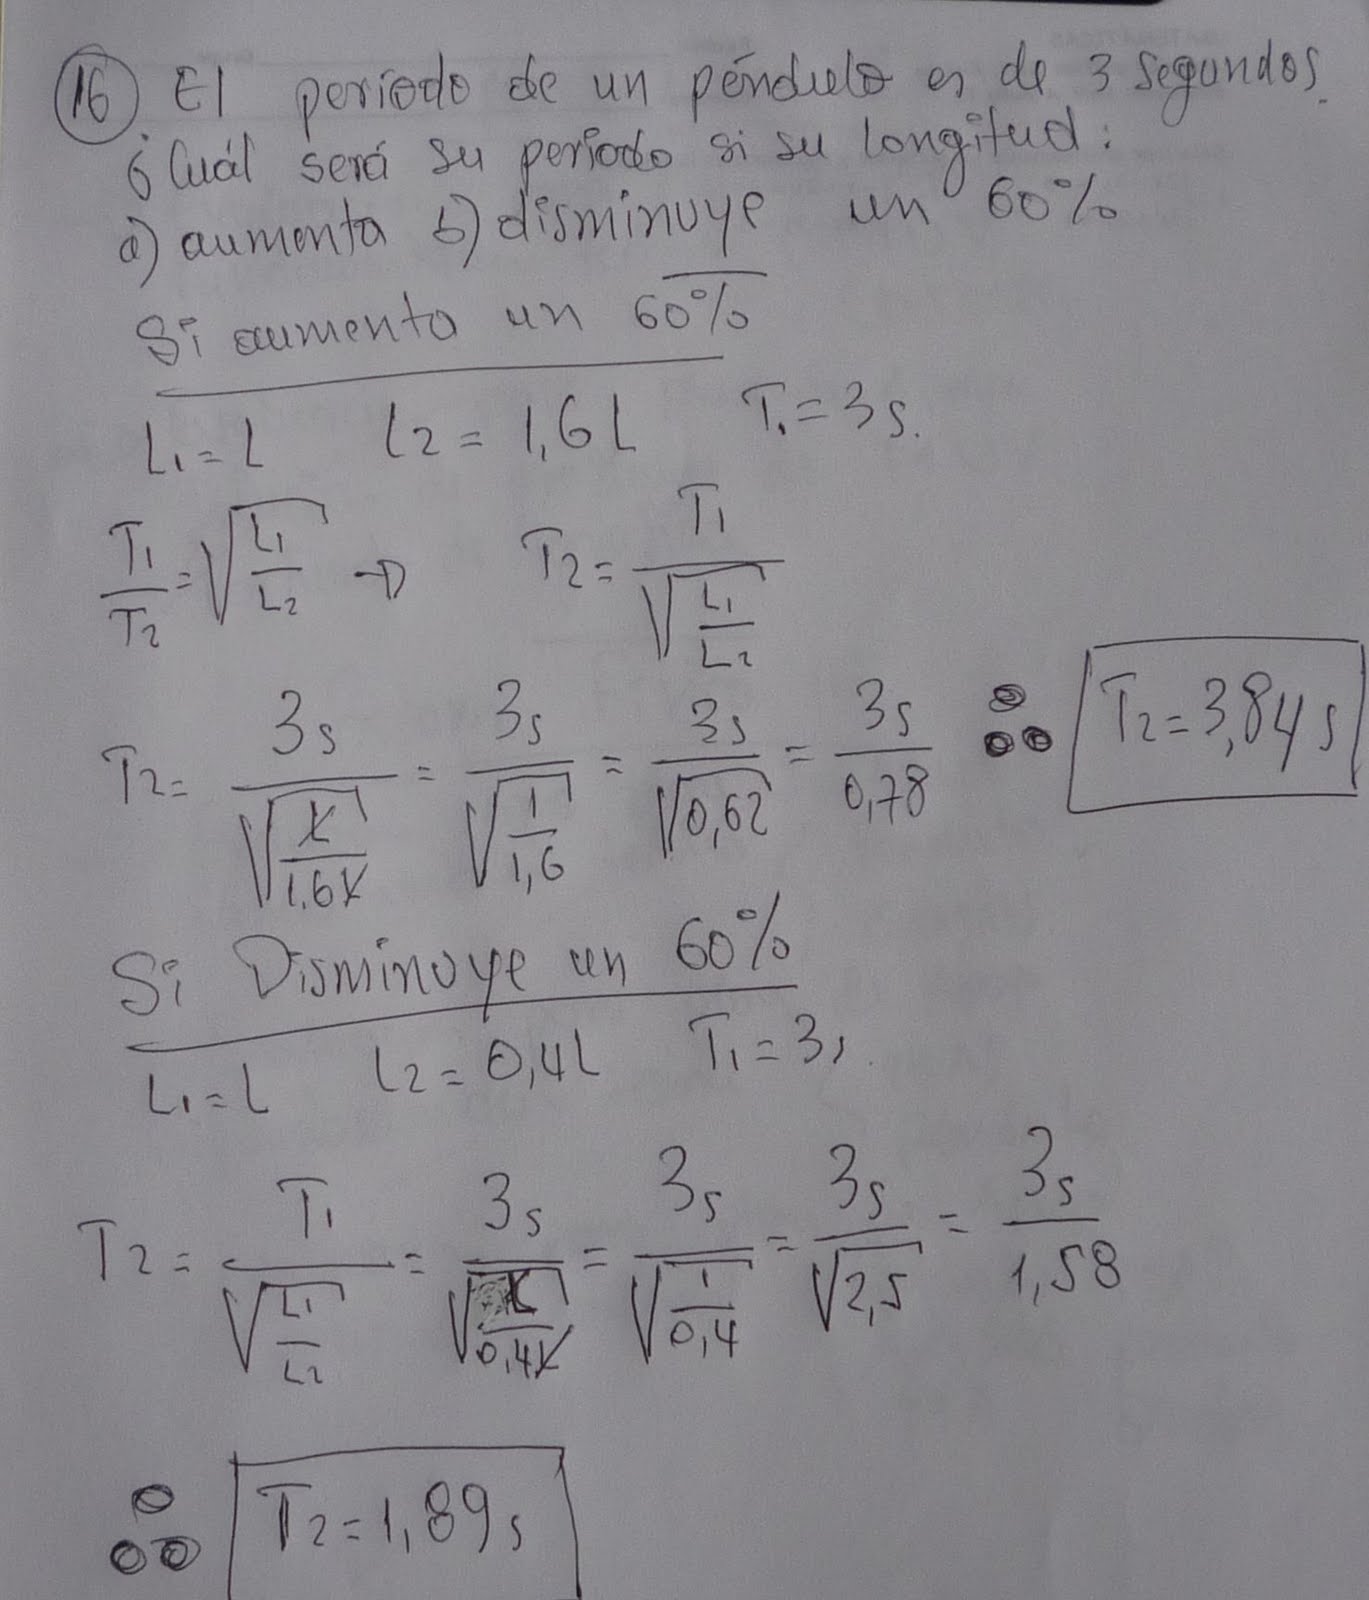 16 El periodo de un péndulo es de 3 segundos.
¿Cuál será su periodo si su longitud:
a) aumenta b) disminuye un 60%
Si aumenta un 60%
L1 = L L2 = 1,6 L T1 = 3s.
T1/T2 = √(L1/L2) → T2 = T1/√(L1/L2)
T2 = 3s/√(L/1,6L) = 3s/√(1/1,6) = 3s/√0,62 = 3s/0,78 ∴ T2 = 3,84 s
Si Disminuye un 60%
L1 = L L2 = 0,4L T1 = 3s.
T2 = T1/√(L1/L2) = 3s/√(L/0,4L) = 3s/√(1/0,4) = 3s/√2,5 = 3s/1,58
∴ T2 = 1,89 s